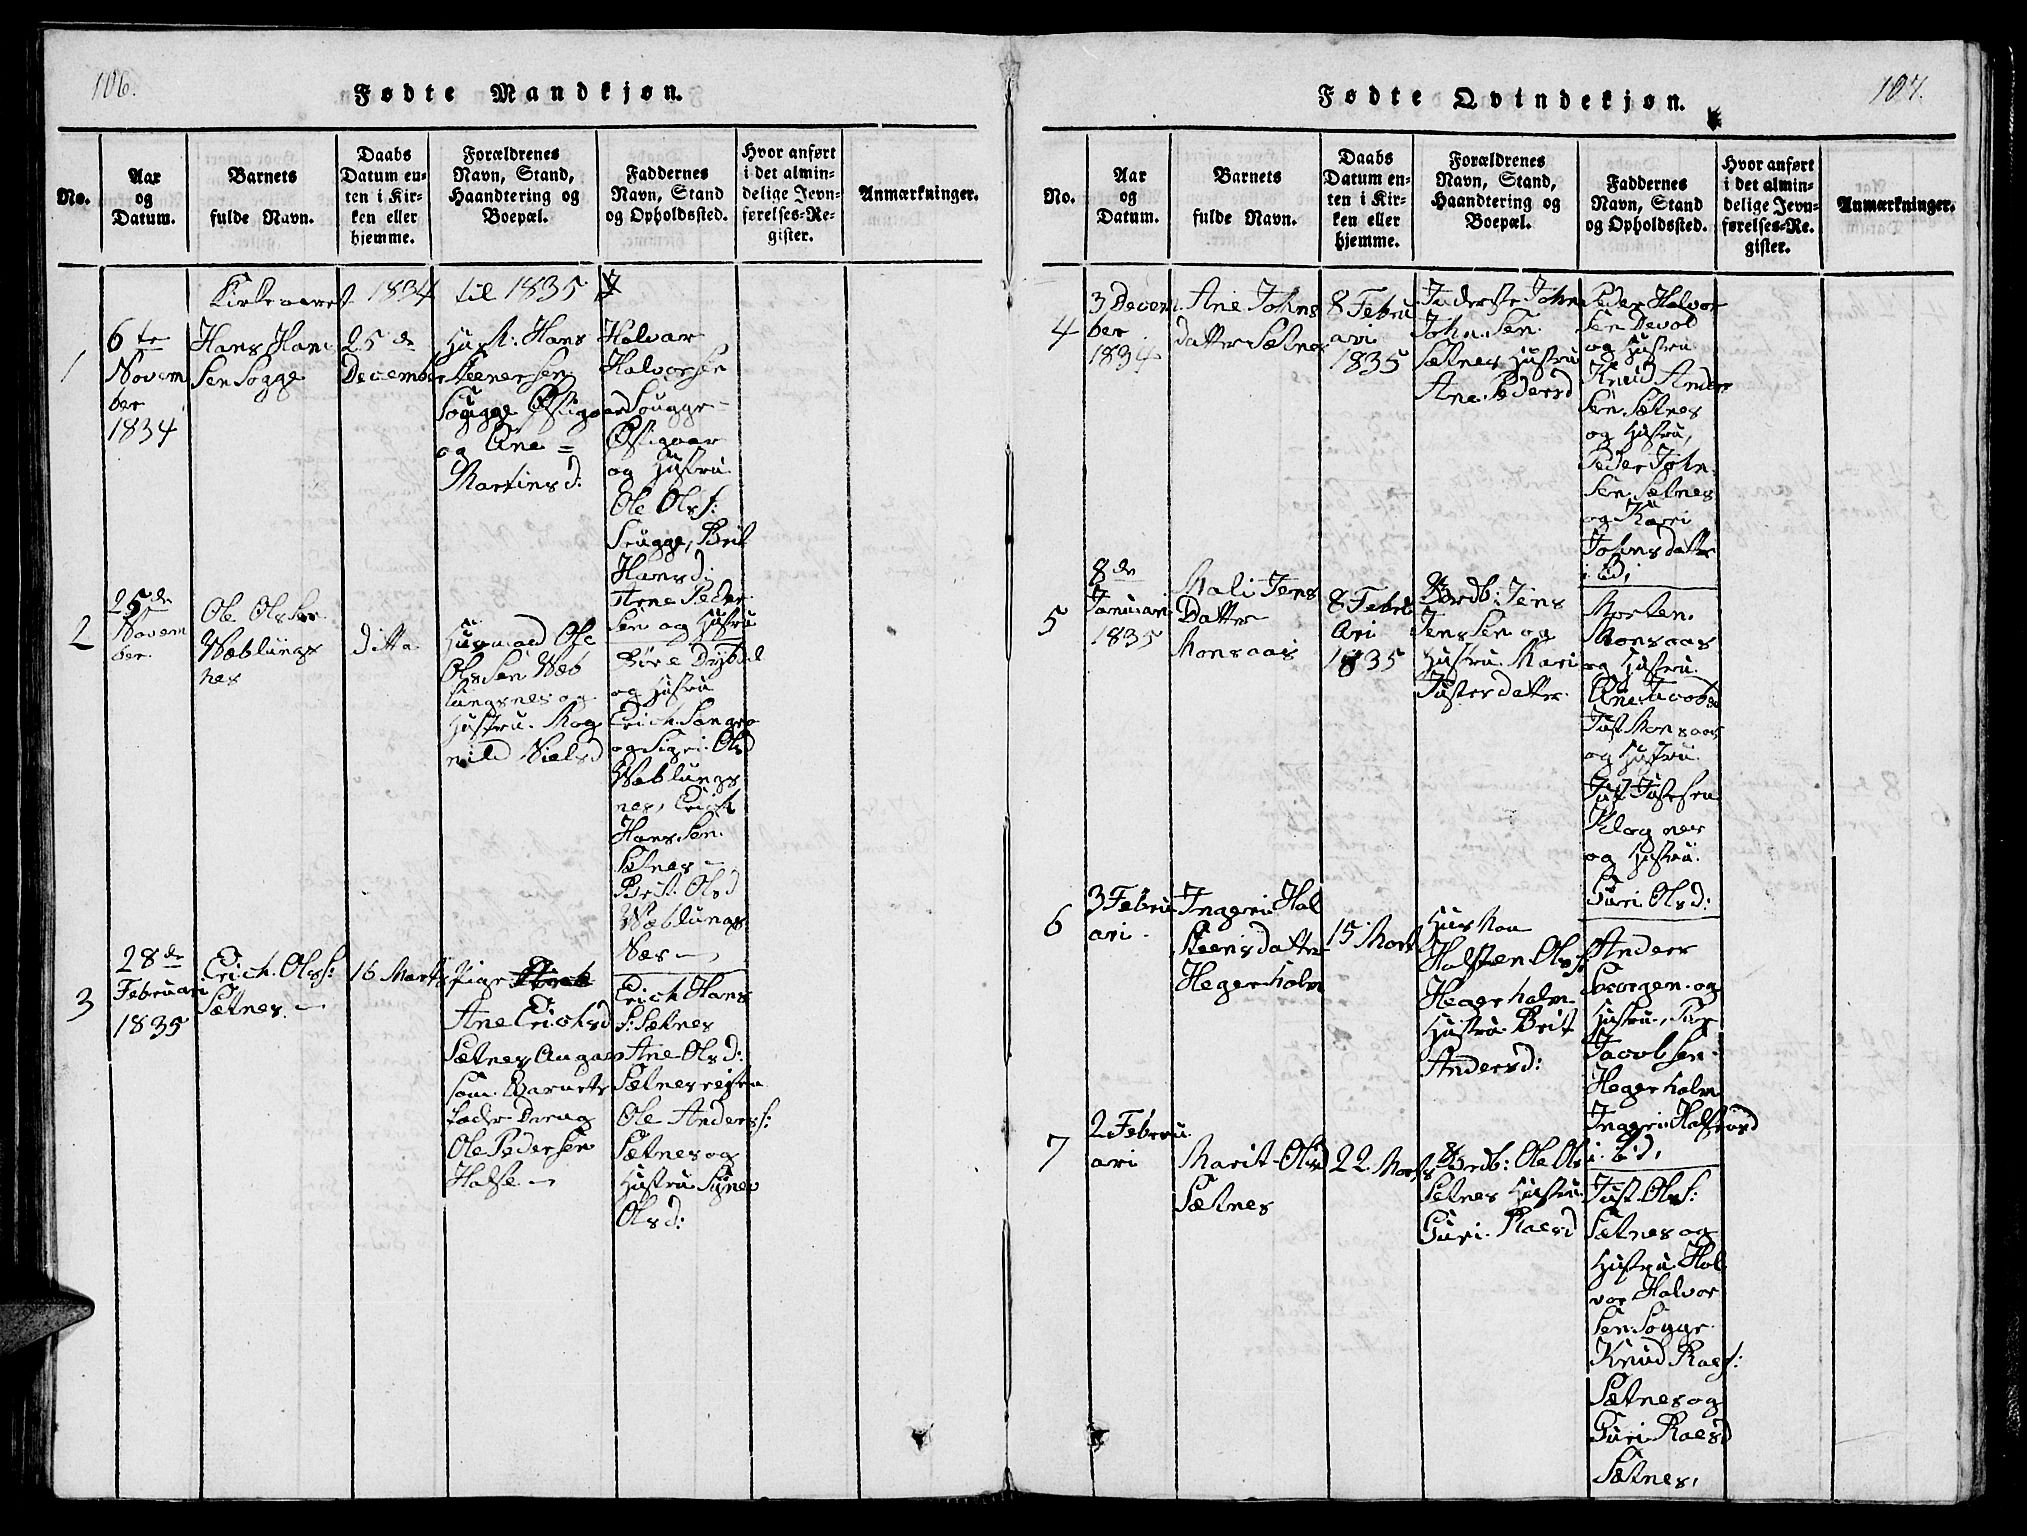 106.
Fødte Mandkjøn.
No.
Aar
og
Datum.
Barnets
fulde Navn.
Daabs
Datum en-
ten i Kir-
ken eller
hjemme.
Forældrenes
Navn, Stand,
Haandtering og
Boepæl.
Faddernes
Navn, Stand
og Opholdssted.
Hvor anført
i det almin-
delige Jevn-
førelses-Re-
gister.
Anmærkninger.
Kirkeaaret 1834 til 1835
1
6te
Novem
ber
1834
Hans Han
Sen Sogge
25de
December
Husm: Hans
Steenersen
Sougge Østigaard
og Ane =
Martinsd:
Halvar
Halvorsen
Sougge
Østigaar
og Hustru
Ole Olss:
Sougge, Brit
Hansd:
Arne Peder
Sen og Hustru
2
25de
Novem
ber.
Ole OlsSen
Wæblungs
nes
ditto
Husmand Ole
OlsSen Wæb
lungsnes og
Hustru. Rag
nild Nielsd
Børe Dybdal
og Hustru
Erich
og Sigri Olsd
Wæblungs
nes, Erich
HansSen.
Sætnes
Brit Olsd
Wæblungs
Næs
3
28de
Februari
1835
Erich Olss:
Sætnes.
16 Marts
Pige
Ane Erichsd
Sætnes Angav
som Barnets
fader Dreng
Ole Pedersen
Halse
Erich Hans
S: Sætnes
Ane Olsd:
Sætnes
Ole Anderss:
Sætnes og
Hustru Synev
Olsd:
107.
Fødte Qvindekjøn.
No.
Aar
og
Datum.
Barnets
fulde Navn.
Daabs
Datum en-
ten i Kir-
ken eller
hjemme.
Forældrenes
Navn, Stand,
Haandtering og
Boepæl.
Faddernes
Navn, Stand
og Opholdssted.
Hvor anført
i det almin-
delige Jevn-
førelses-Re-
gister.
Anmærkninger.
4
3 Decem
ber
1834
Ane Johns
datter Sætnes
8 Febru
ari
1835
Inderste John
JohnSen.
Sætnes Hustru
Ane Pedersd
Peder Halvor
Sen Devold
og Hustru
Knud Ander
Sen. Sætnes
og Hustru,
Peder John
Sen. Sætnes
og Kari
Johnsdatter
i bd,
5
8de
Januari
1835
Mali Jens
Datter
Monsaas
8 Febru
Ari
1835
Gordb: Jens
JensSen og
Hustru. Mari
Justesdatter
Morten.
Monsaas
og Hustru.
Ane Jacobsd
Just Monsaas
og Hustru
Just Justesen
Klognes
og Hustru.
Guri Olsd:
6
3 Febru
ari
Ingeri Hal
Steensdatter
Hegerholm
15 Mart
HusMan
Halsten Olss:
Hegerholm
Hustru. Brit
Andersd:
Anders
Soorgen og
Hustru,
Jacobsen
Hegerholm
Ingeri
i bd,
7
2 Febru
ari
Marit Olsd
Sætnes
22 Marts
Gordb: Ole Ols
Setnes Hustru
Guri Roesd
Just Olss:
Sætnes og
Hustru Hal
vor Halvor
Sen Sogge
Knud Roes:
Sætnes og
Guri Roesd
Sætnes,